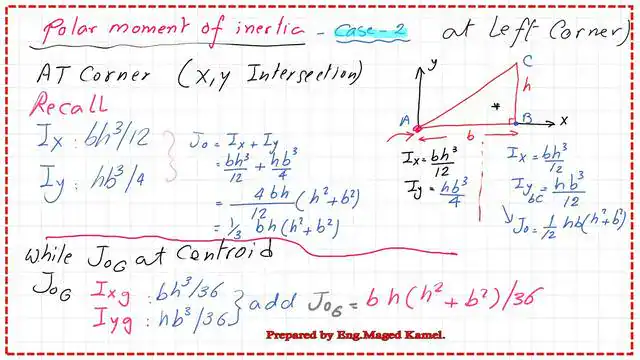 Polar moment of inertia - Case-2 at Left Corner)
AT Corner (x,y Intersection)
Recall
Ix : bh³/12
Iy : hb³/4
Jo = Ix + Iy
= bh³/12 + hb³/4
= 4bh/12 (h²+b²)
= 1/3 bh(h²+b²)
y
C
h
A
B
x
b
Ix = bh³/12
Iy = hb³/4
Ix = bh³/12
Iy BC = hb³/12
Jo = 1/12 hb(h²+b²)
while JoG at Centroid
JoG Ixg : bh³/36
Iyg : hb³/36 } add JoG = bh(h²+b²)/36
Prepared by Eng.Maged Kamel.